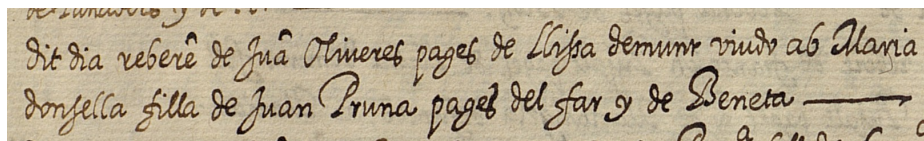 dit dia reberē de Juā Oliveres pages de Llissa demunt viudo ab Maria
donsella filla de Juan Pruna pages del far y de Beneta